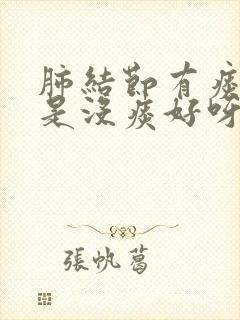 肺結節有痰
是沒痰好呀
張帆葛